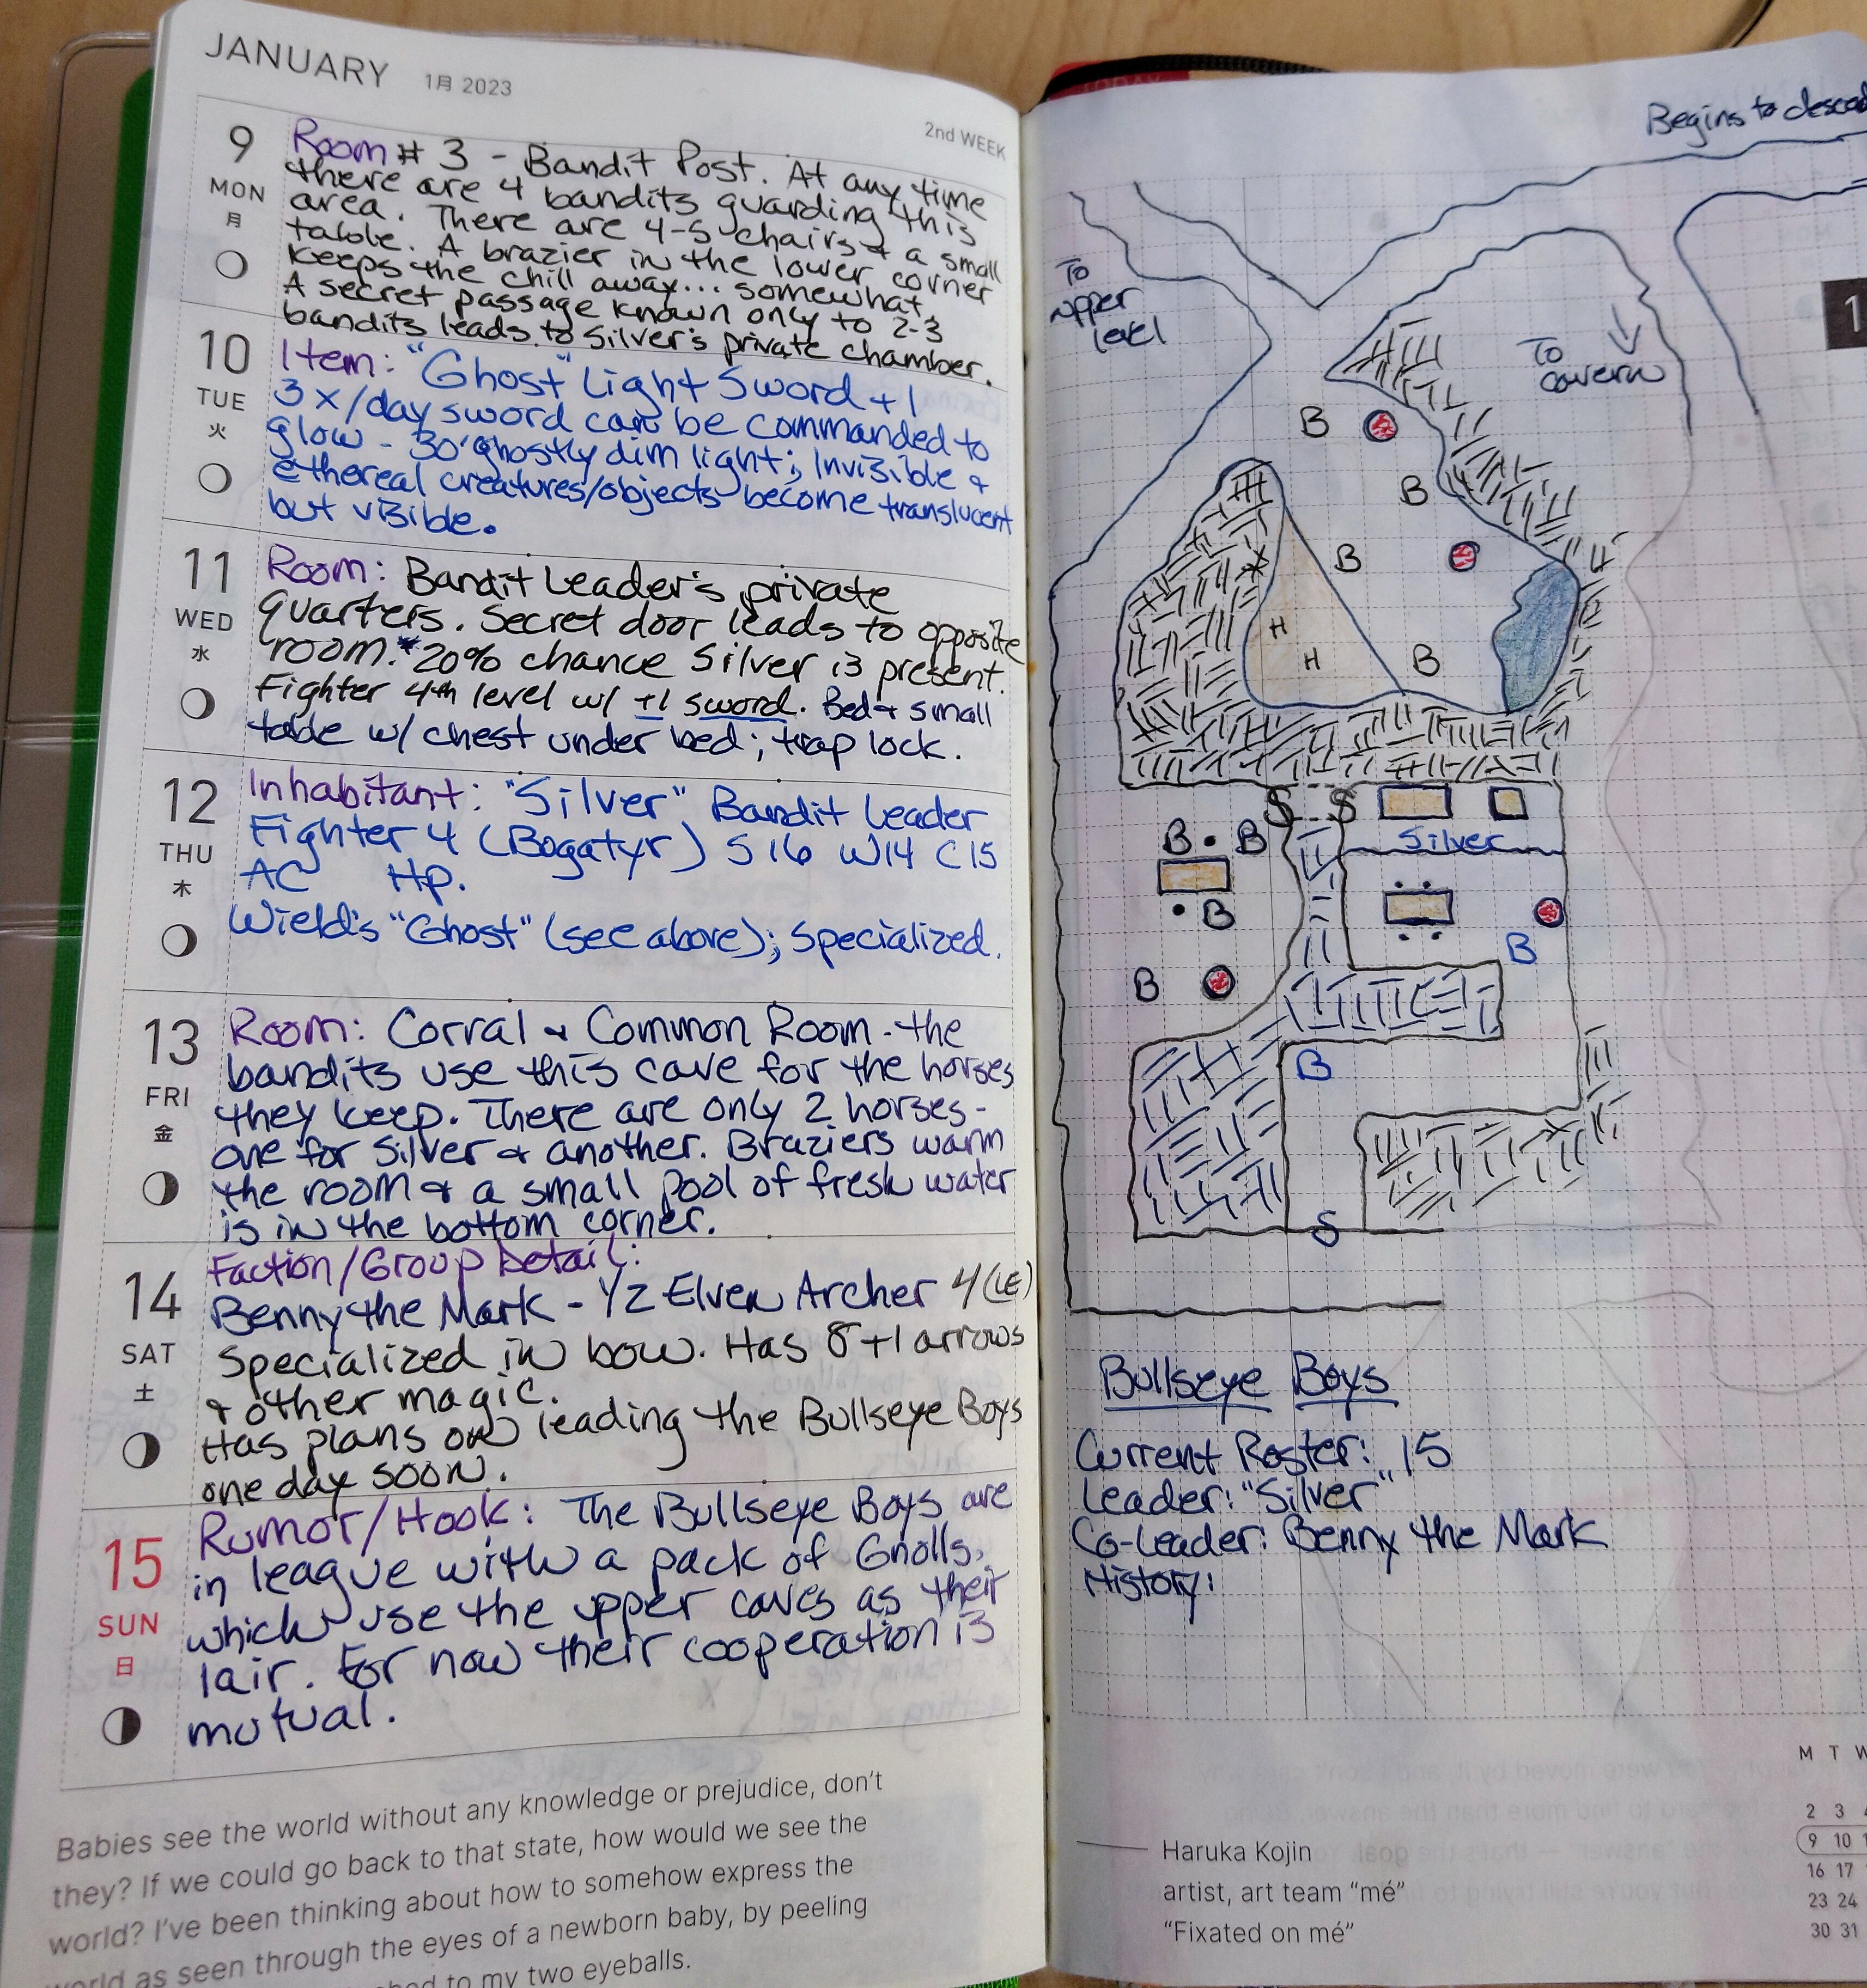 JANUARY 1月 2023
2nd WEEK
9
MON
月
Room # 3 - Bandit Post. At any time
there are 4 bandits guarding this
area. There are 4-5 chairs & a small
table. A brazier in the lower corner
keeps the chill away... somewhat.
A secret passage known only to 2-3
bandits leads to Silver's private chamber.
10
TUE
火
Item: "Ghost" Light Sword +1
3x/day sword can be commanded to
glow - 30' ghostly dim light; Invisible &
ethereal creatures/objects become translucent
but visible.
11
WED
水
Room: Bandit Leader's private
quarters. Secret door leads to opposite
room.* 20% chance Silver is present.
Fighter 4th level w/ +1 sword. Bed & small
table w/ chest under bed; trap lock.
12
THU
木
Inhabitant: "Silver" Bandit Leader
Fighter 4 (Bogatyr) S 16 W14 C15
AC Hp.
Wield's "Ghost" (see above); Specialized.
13
FRI
金
Room: Corral & Common Room - the
bandits use this cave for the horses
they keep. There are only 2 horses-
one for Silver & another. Braziers warm
the room & a small pool of fresh water
is in the bottom corner.
14
SAT
土
Faction/Group Detail:
Benny the Mark - 1/2 Elven Archer 4 (LE)
Specialized in bow. Has 8 +1 arrows
& other magic.
Has plans on leading the Bullseye Boys
one day soon.
15
SUN
日
Rumor/Hook: The Bullseye Boys are
in league with a pack of Gnolls,
which use the upper caves as their
lair. For now their cooperation is
mutual.
Babies see the world without any knowledge or prejudice, don't
they? If we could go back to that state, how would we see the
world? I've been thinking about how to somehow express the
world as seen through the eyes of a newborn baby, by peeling
to my two eyeballs.
Begins to
To
upper
level
To
cavern
1
B
B
B
H
H
B
S S
Silver
B B
B
B
B
B
S
Bullseye Boys
Current Roster: 15
Leader: "Silver"
Co-Leader: Benny the Mark
History:
Haruka Kojin
artist, art team "mé"
"Fixated on mé"
M T W
2 3 4
9 10 1
16 17
23 24
30 31